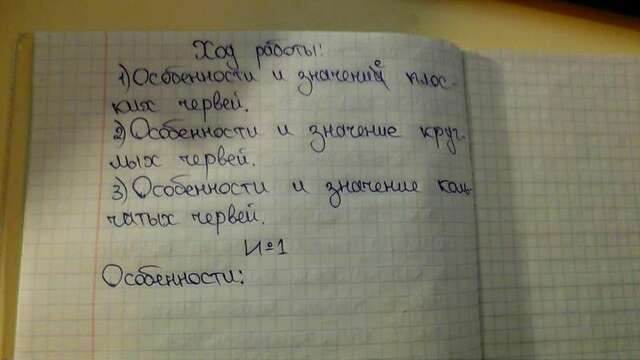 Ход работы:
1) Особенности и значение плос-
ких червей.
2) Особенности и значение круг-
лых червей.
3) Особенности и значение коль-
чатых червей.
№1
Особенности: